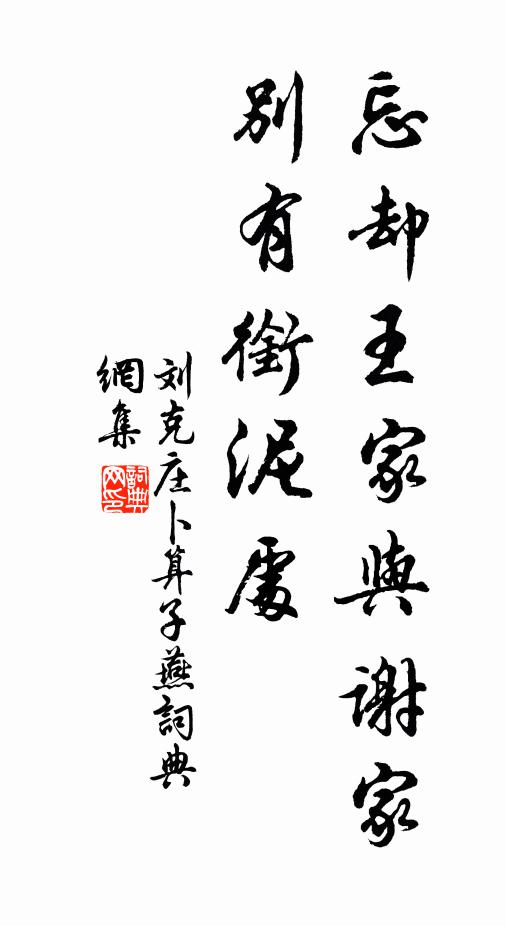 忘却王家與謝家
別有銜泥處
刘克庄卜算子燕詞典
網集
詞典
网印